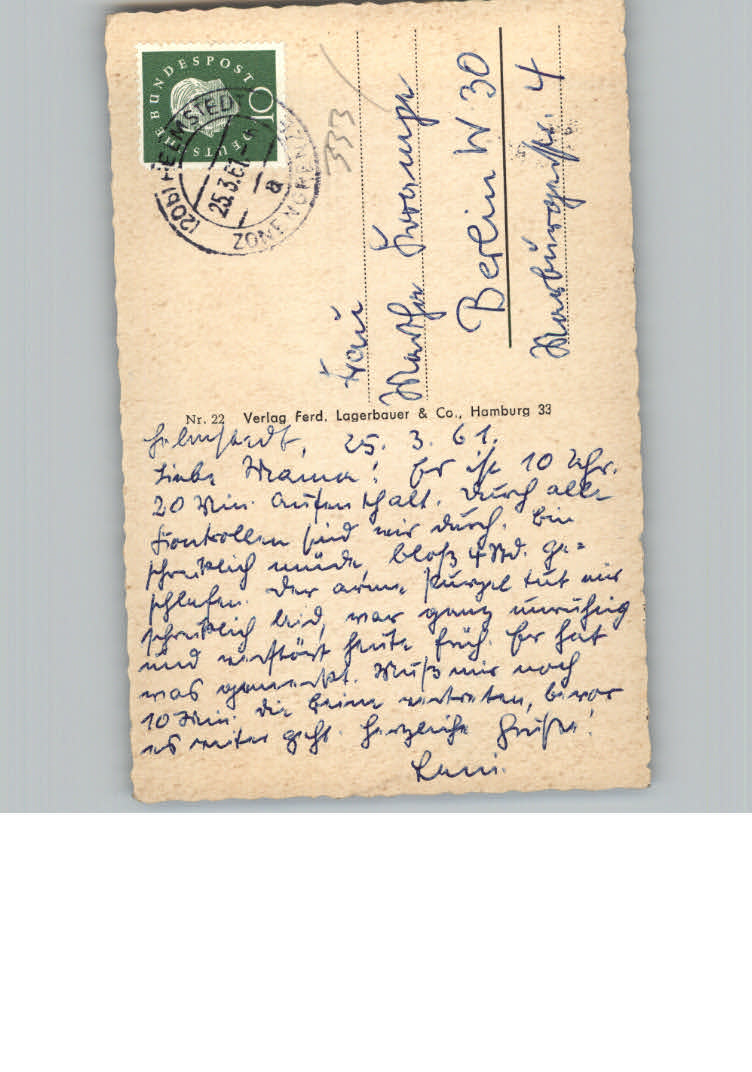 DEUTSCHE BUNDESPOST
10
(20b) HELMSTEDT
25.3.61
a
ZONENGRENZE
333
Frau
Martha
Berlin W 30
Marburgerstr. 4
Nr. 22 Verlag Ferd. Lagerbauer & Co., Hamburg 33
Helmstedt, 25. 3. 61.
Liebe Mama! Es ist 10 Uhr.
20 Min. Aufenthalt. Durch alle
Kontrollen sind wir durch. Bin
schrecklich müde, bloß 4 Std. ge=
schlafen. Der arme Purzel tut mir
schrecklich leid, war ganz unruhig
und verstört heute früh. Er hat
was gemerkt. Muß mir noch
10 Min. die Beine vertreten, bevor
es weiter geht. Herzliche Grüße!